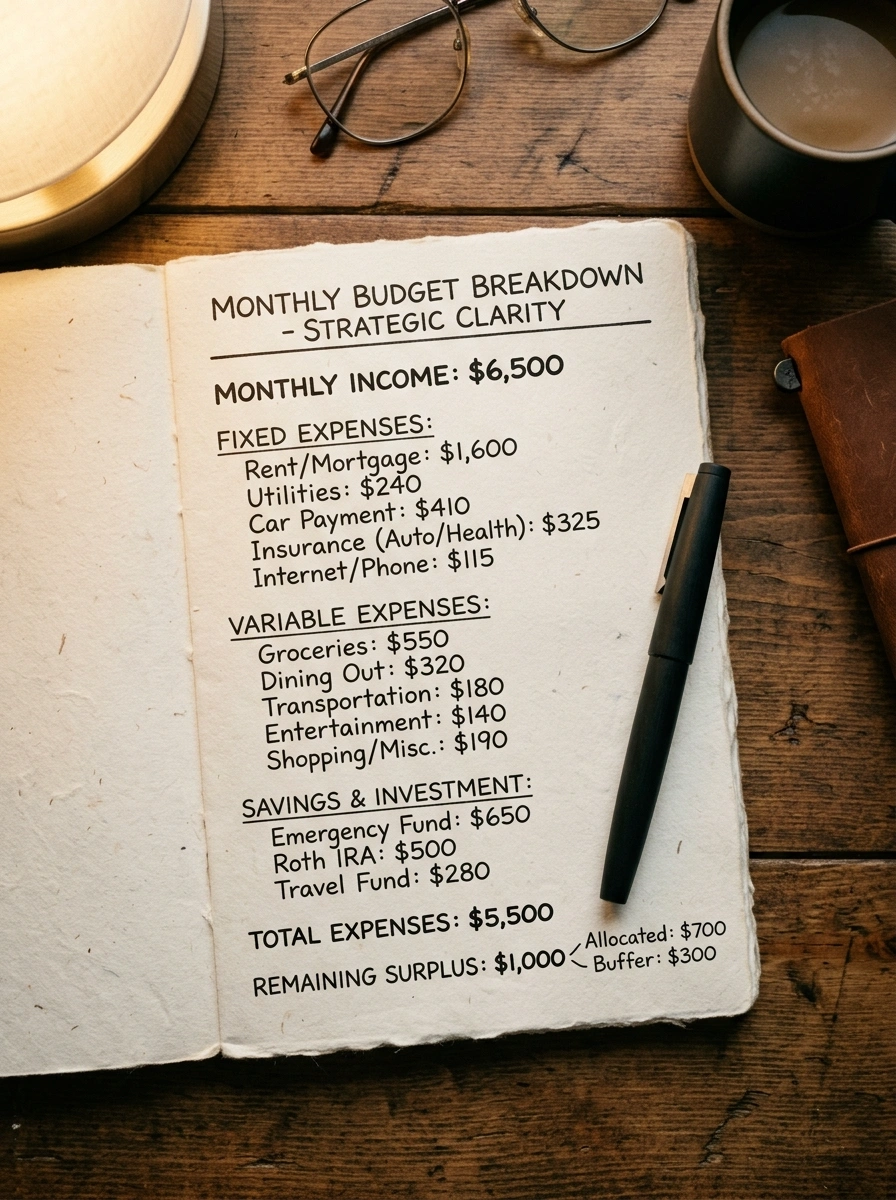 MONTHLY BUDGET BREAKDOWN
– STRATEGIC CLARITY
MONTHLY INCOME: $6,500
FIXED EXPENSES:
Rent/Mortgage: $1,600
Utilities: $240
Car Payment: $410
Insurance (Auto/Health): $325
Internet/Phone: $115
VARIABLE EXPENSES:
Groceries: $550
Dining Out: $320
Transportation: $180
Entertainment: $140
Shopping/Misc.: $190
SAVINGS & INVESTMENT:
Emergency Fund: $650
Roth IRA: $500
Travel Fund: $280
TOTAL EXPENSES: $5,500
REMAINING SURPLUS: $1,000
Allocated: $700
Buffer: $300